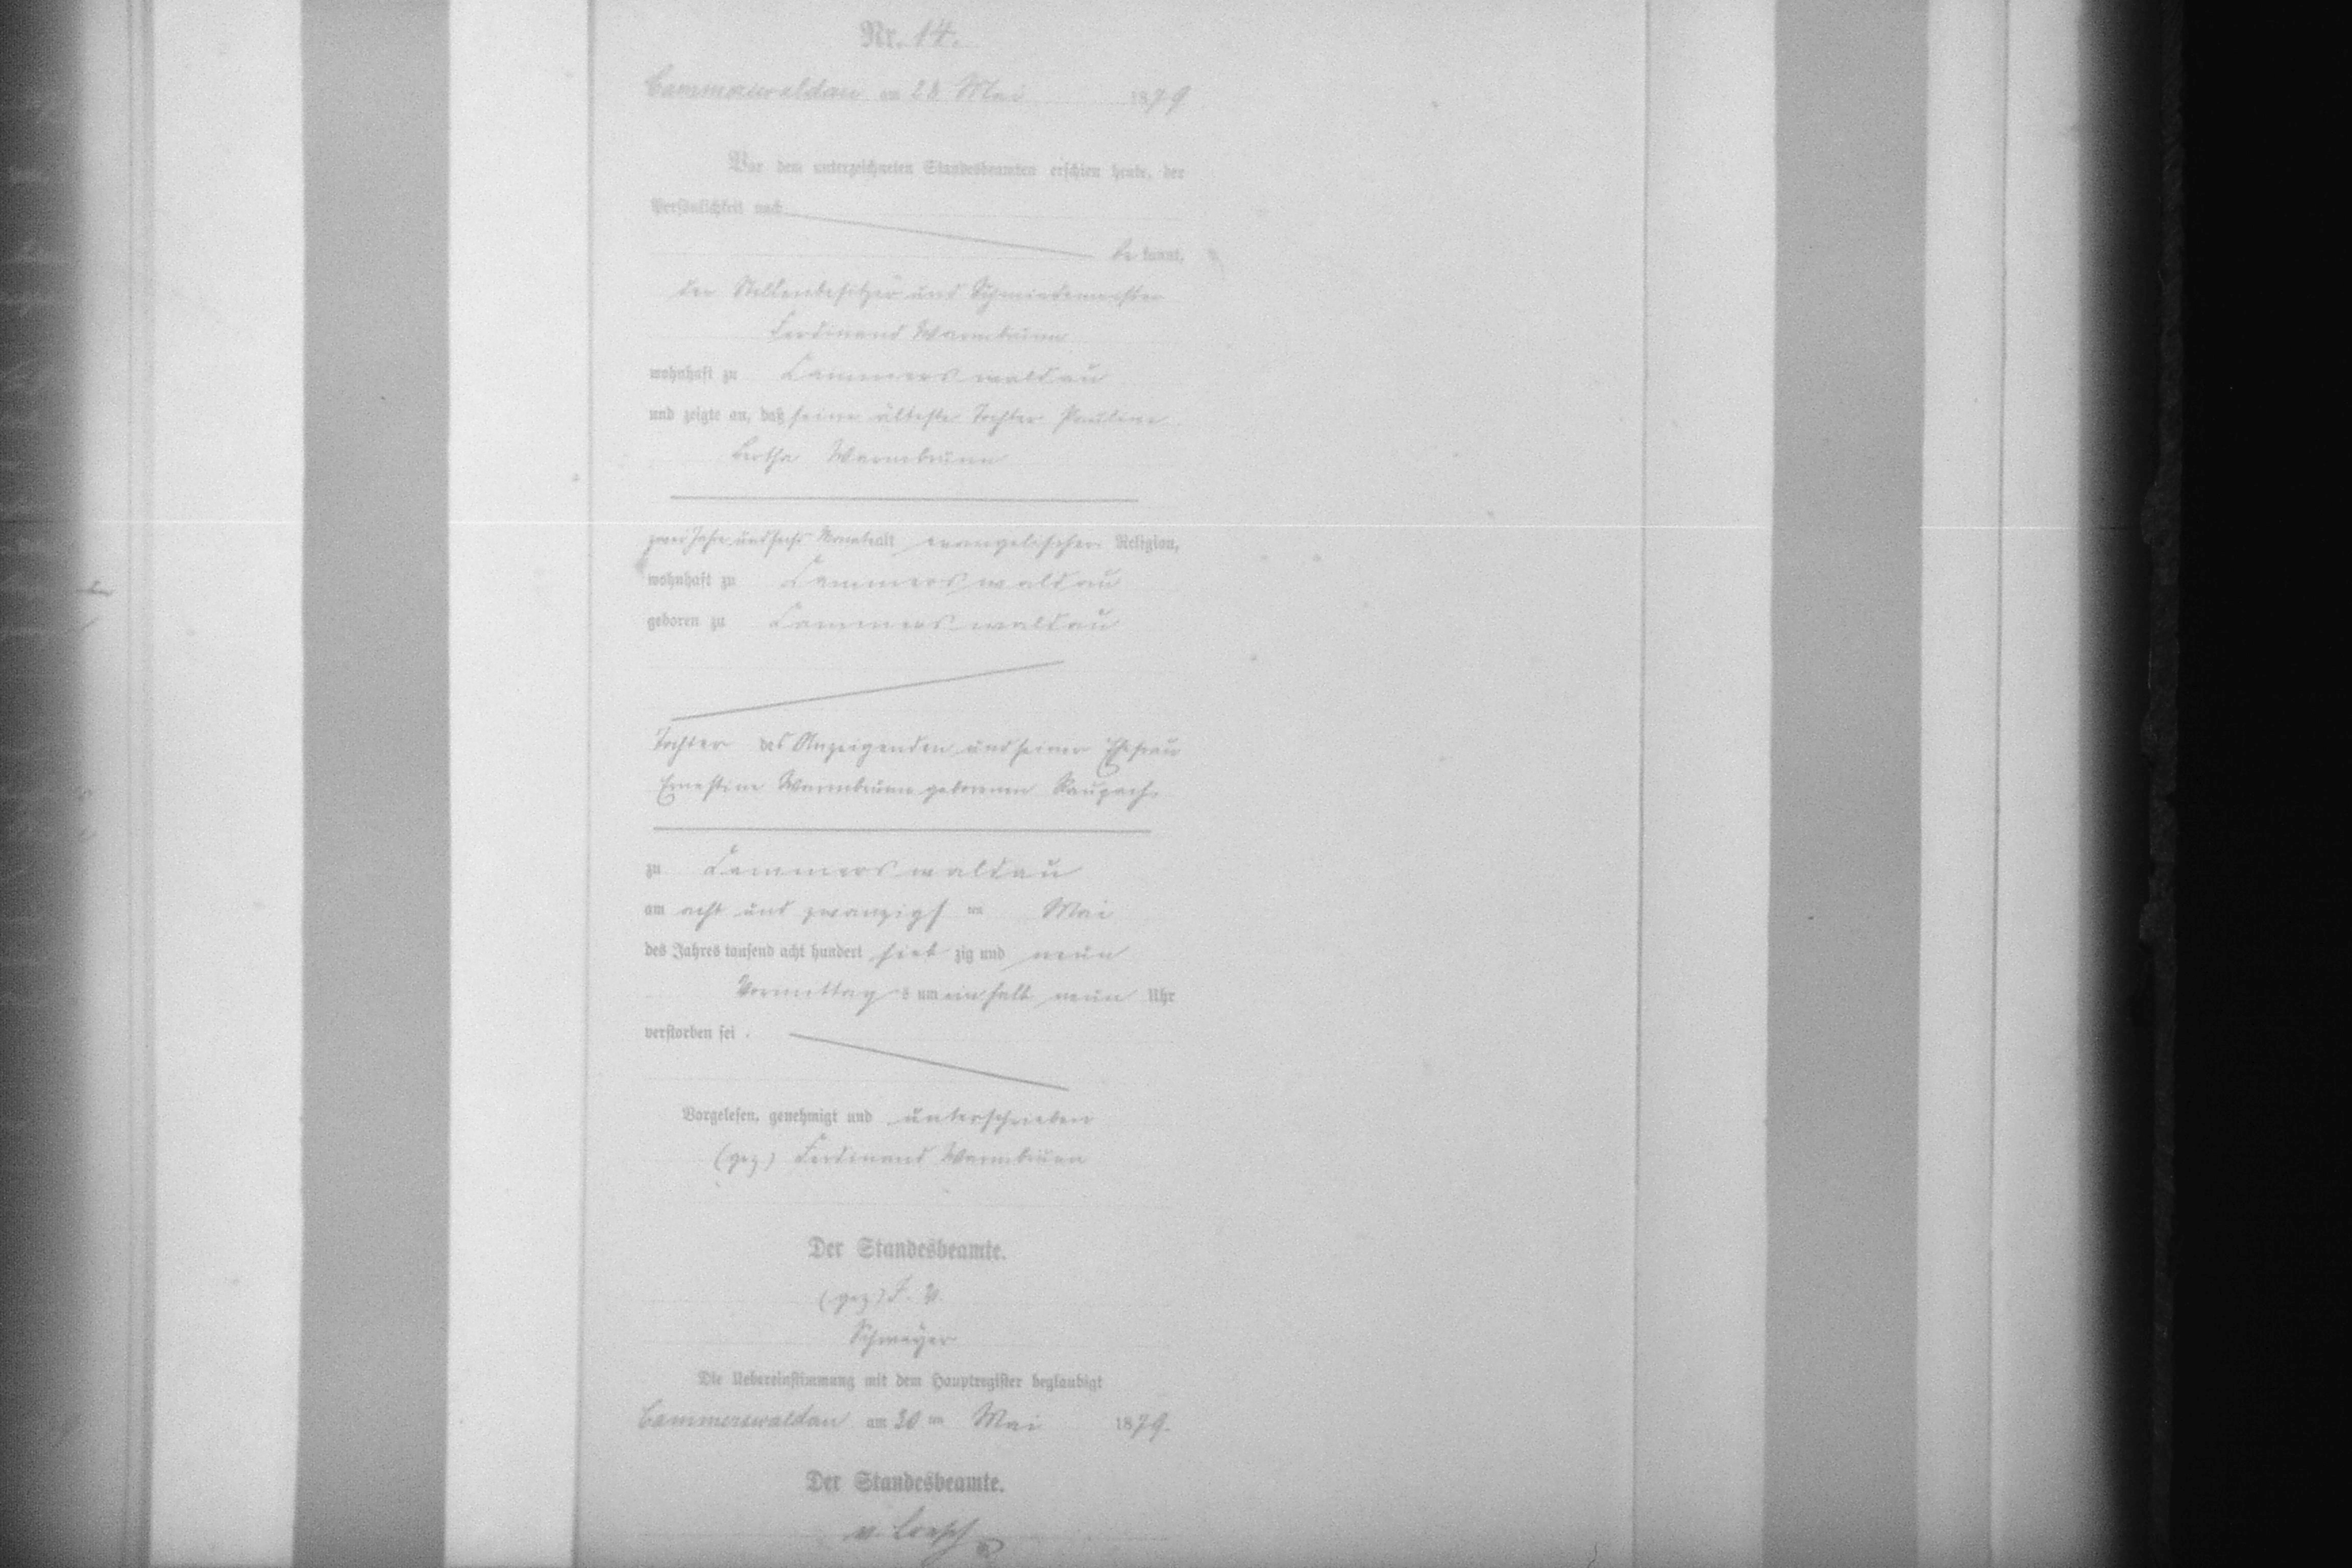 Nr. 14.
Cammerswaldau am 28 Mai 1879
Vor dem unterzeichneten Standesbeamten erschien heute, der
Persönlichkeit nach
be kannt,
der Stellenbesitzer und Schmiedemeister
Ferdinand Warmbrunn
wohnhaft zu Cammerswaldau
und zeigte an, daß seine älteste Tochter Pauline
Bertha Warmbrunn
zwei Jahre und sechs Monate alt evangelischer Religion,
wohnhaft zu Cammerswaldau
geboren zu Cammerswaldau
Tochter des Anzeigenden und seiner Ehefrau
Ernestine Warmbrunn geborenen Raupach
zu Cammerswaldau
am acht und zwanzigsten Mai
des Jahres tausend acht hundert sieb zig und neun
Vormittags um ein halb neun Uhr
verstorben sei.
Vorgelesen, genehmigt und unterschrieben
(gez) Ferdinand Warmbrunn
Der Standesbeamte.
(gez) J. V.
Schweyer
Die Uebereinstimmung mit dem Hauptregister beglaubigt
Cammerswaldau am 30 ten Mai 1879.
Der Standesbeamte.
v. Loesch